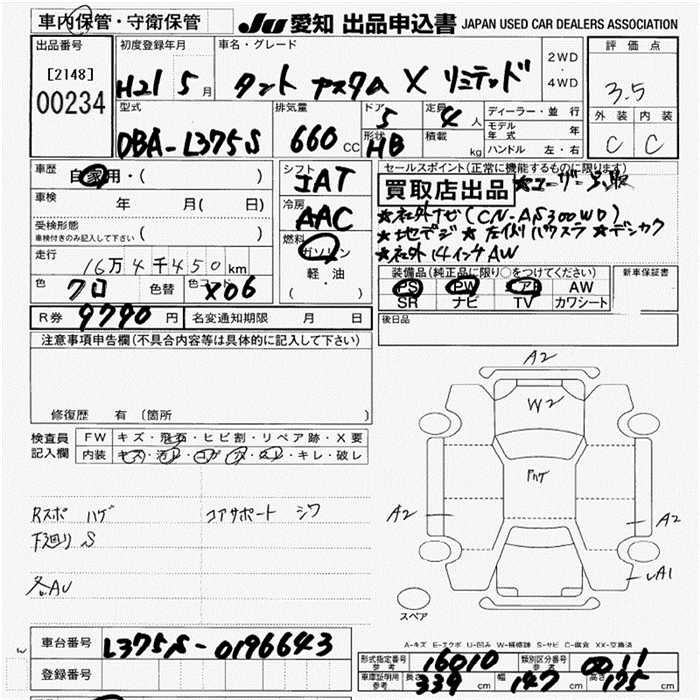 車内保管・守衛保管
JU 愛知 出品申込書 JAPAN USED CAR DEALERS ASSOCIATION
出品番号 初度登録年月 車名・グレード 2WD・4WD 評価点
[2148]
00234
H21 5月 タント カスタム X リミテッド 3.5
型式 排気量 ドア 5 定員 4人 ディーラー・並行 外装 内装
DBA-L375S 660 CC 形状 HB 積載 kg モデル年式 年 C C
ハンドル 左・右
車歴 自家用・( ) シフト IAT セールスポイント(正常に機能するものに限ります)
買取店出品 ★ユーザー買取
車検 年 月( 日) 冷房 AAC ★社外ナビ(CN-AS300WD)
受検形態 ( ) 燃料 ★地デジ ★左側パワスラ ★デンカク
車検付きのみ記入して下さい ガソリン ★社外14インチAW
走行 16万4千450km 軽・油 装備品(純正品に限り○をつけてください) 新車保証書
色 クロ 色替 色コード X06 ( ) PS PW AW
SR ナビ TV カワシート
R券 9790円 名変通知期限 月 日 後日品
注意事項申告欄(不具合内容等は具体的に記入して下さい)
修復歴 有 (箇所 )
検査員記入欄 FW キズ・飛石・ヒビ割・リペア跡・X要
内装 キズ・汚レ・コゲ・穴・ヌレ・キレ・破レ
Rスポ ハゲ コアサポート シワ
下廻り S
各AU
A2
W2
ハゲ
A2
A2
UA1
スペア
A-キズ E-エクボ U-凹み W-補修跡 S-サビ C-腐食 XX-交換済
車台番号 L375S-0196643 形式指定番号 参考 16010 類別区分番号 参考 0011
登録番号 車庫証明用 参考 長さ 339 cm 幅 147 cm 高さ 175 cm